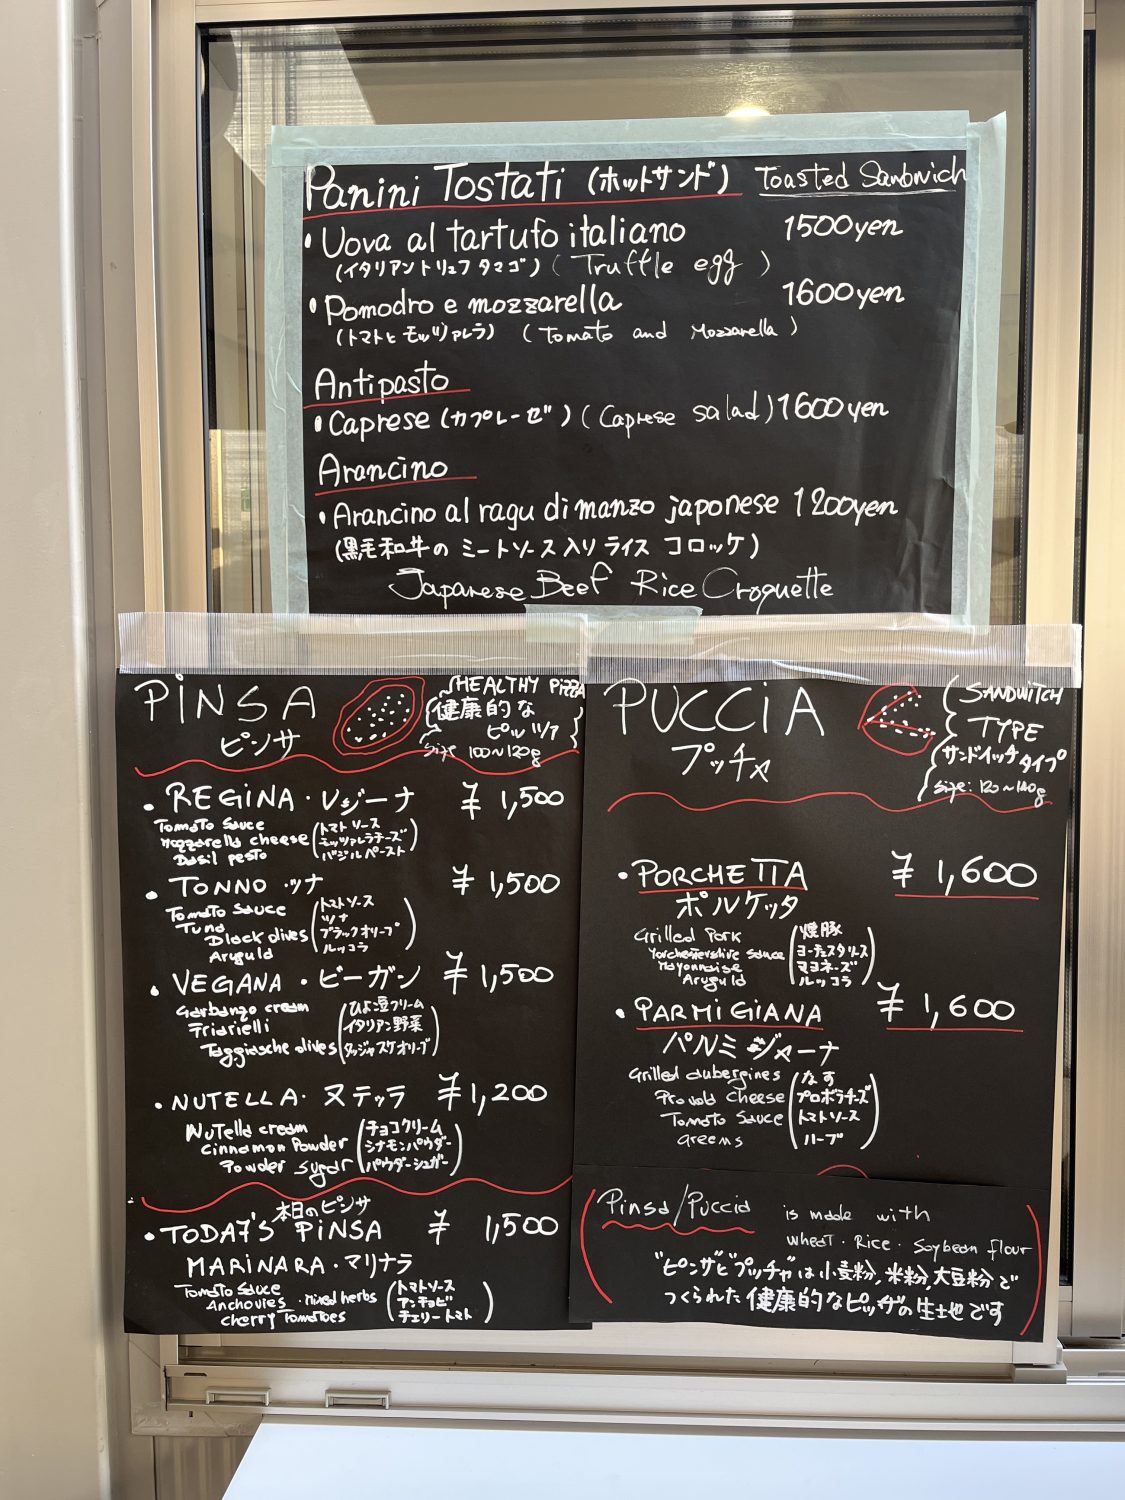 Panini Tostati (ホットサンド) Toasted Sandwich
• Uova al tartufo italiano 1500yen
(イタリアントリュフタマゴ) (Truffle egg)
• Pomodro e mozzarella 1600yen
(トマトとモッツァレラ) (Tomato and Mozzarella)
Antipasto
• Caprese (カプレーゼ) (Caprese salad) 1600yen
Arancino
• Arancino al ragu di manzo japonese 1200yen
(黒毛和牛のミートソース入りライスコロッケ)
Japanese Beef Rice Croquette
PiNSA
ピンサ
HEALTHY PIZZA
健康的な
ピッツァ
Size 100~120g
• REGiNA・レジーナ ¥1,500
Tomato Sauce (トマトソース
Mozzarella cheese モッツァレラチーズ
Basil pesto バジルペースト)
• TONNO・ツナ ¥1,500
Tomato Sauce (トマトソース
Tuna ツナ
Black olives ブラックオリーブ
Arugula ルッコラ)
• VEGANA・ビーガン ¥1,500
Garbanzo cream (ひよこ豆クリーム
Friarielli イタリアン野菜
Taggiasche olives タッジャスケオリーブ)
• NUTELLA・ヌテッラ ¥1,200
Nutella cream (チョコクリーム
Cinnamon Powder シナモンパウダー
Powder sugar パウダーシュガー)
本日のピンサ
• TODAY'S PiNSA ¥1,500
MARiNARA・マリナラ
Tomato Sauce (トマトソース
Anchovies・Mixed herbs アンチョビ
cherry Tomatoes チェリートマト)
PUCCiA
プッチャ
SANDWITCH
TYPE
サンドイッチタイプ
Size: 120~140g
• PORCHETTA ¥1,600
ポルケッタ
Grilled Pork (焼豚
sauce ソース
Mayonnaise マヨネーズ
Arugula ルッコラ)
• PARMiGiANA ¥1,600
パルミジャーナ
Grilled aubergines (なす
Provola cheese プロボラチーズ
Tomato Sauce トマトソース
Greens ハーブ)
Pinsa/Puccia is made with
wheat・Rice・Soybean flour
"ピンザ"と"プッチャ"は小麦粉,米粉,大豆粉で
つくられた健康的なピッザの生地です